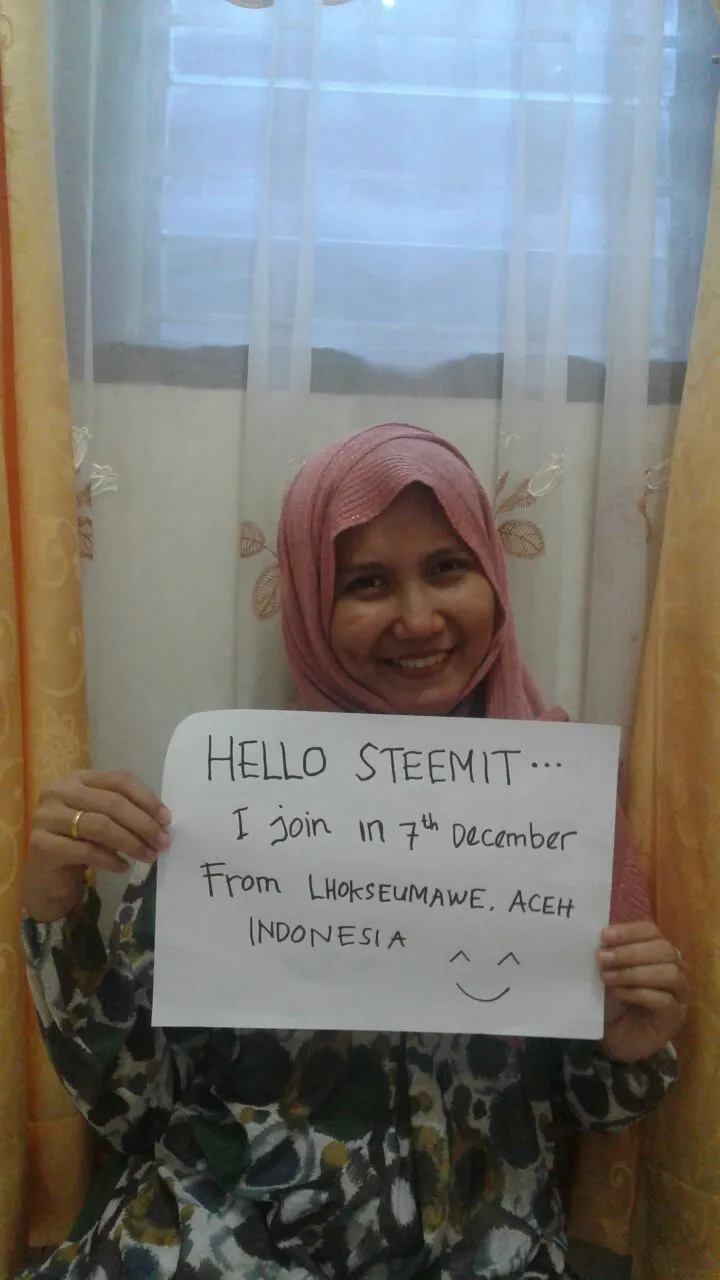 HELLO STEEMIT...
I join in 7th December
From LHOKSEUMAWE. ACEH
INDONESIA